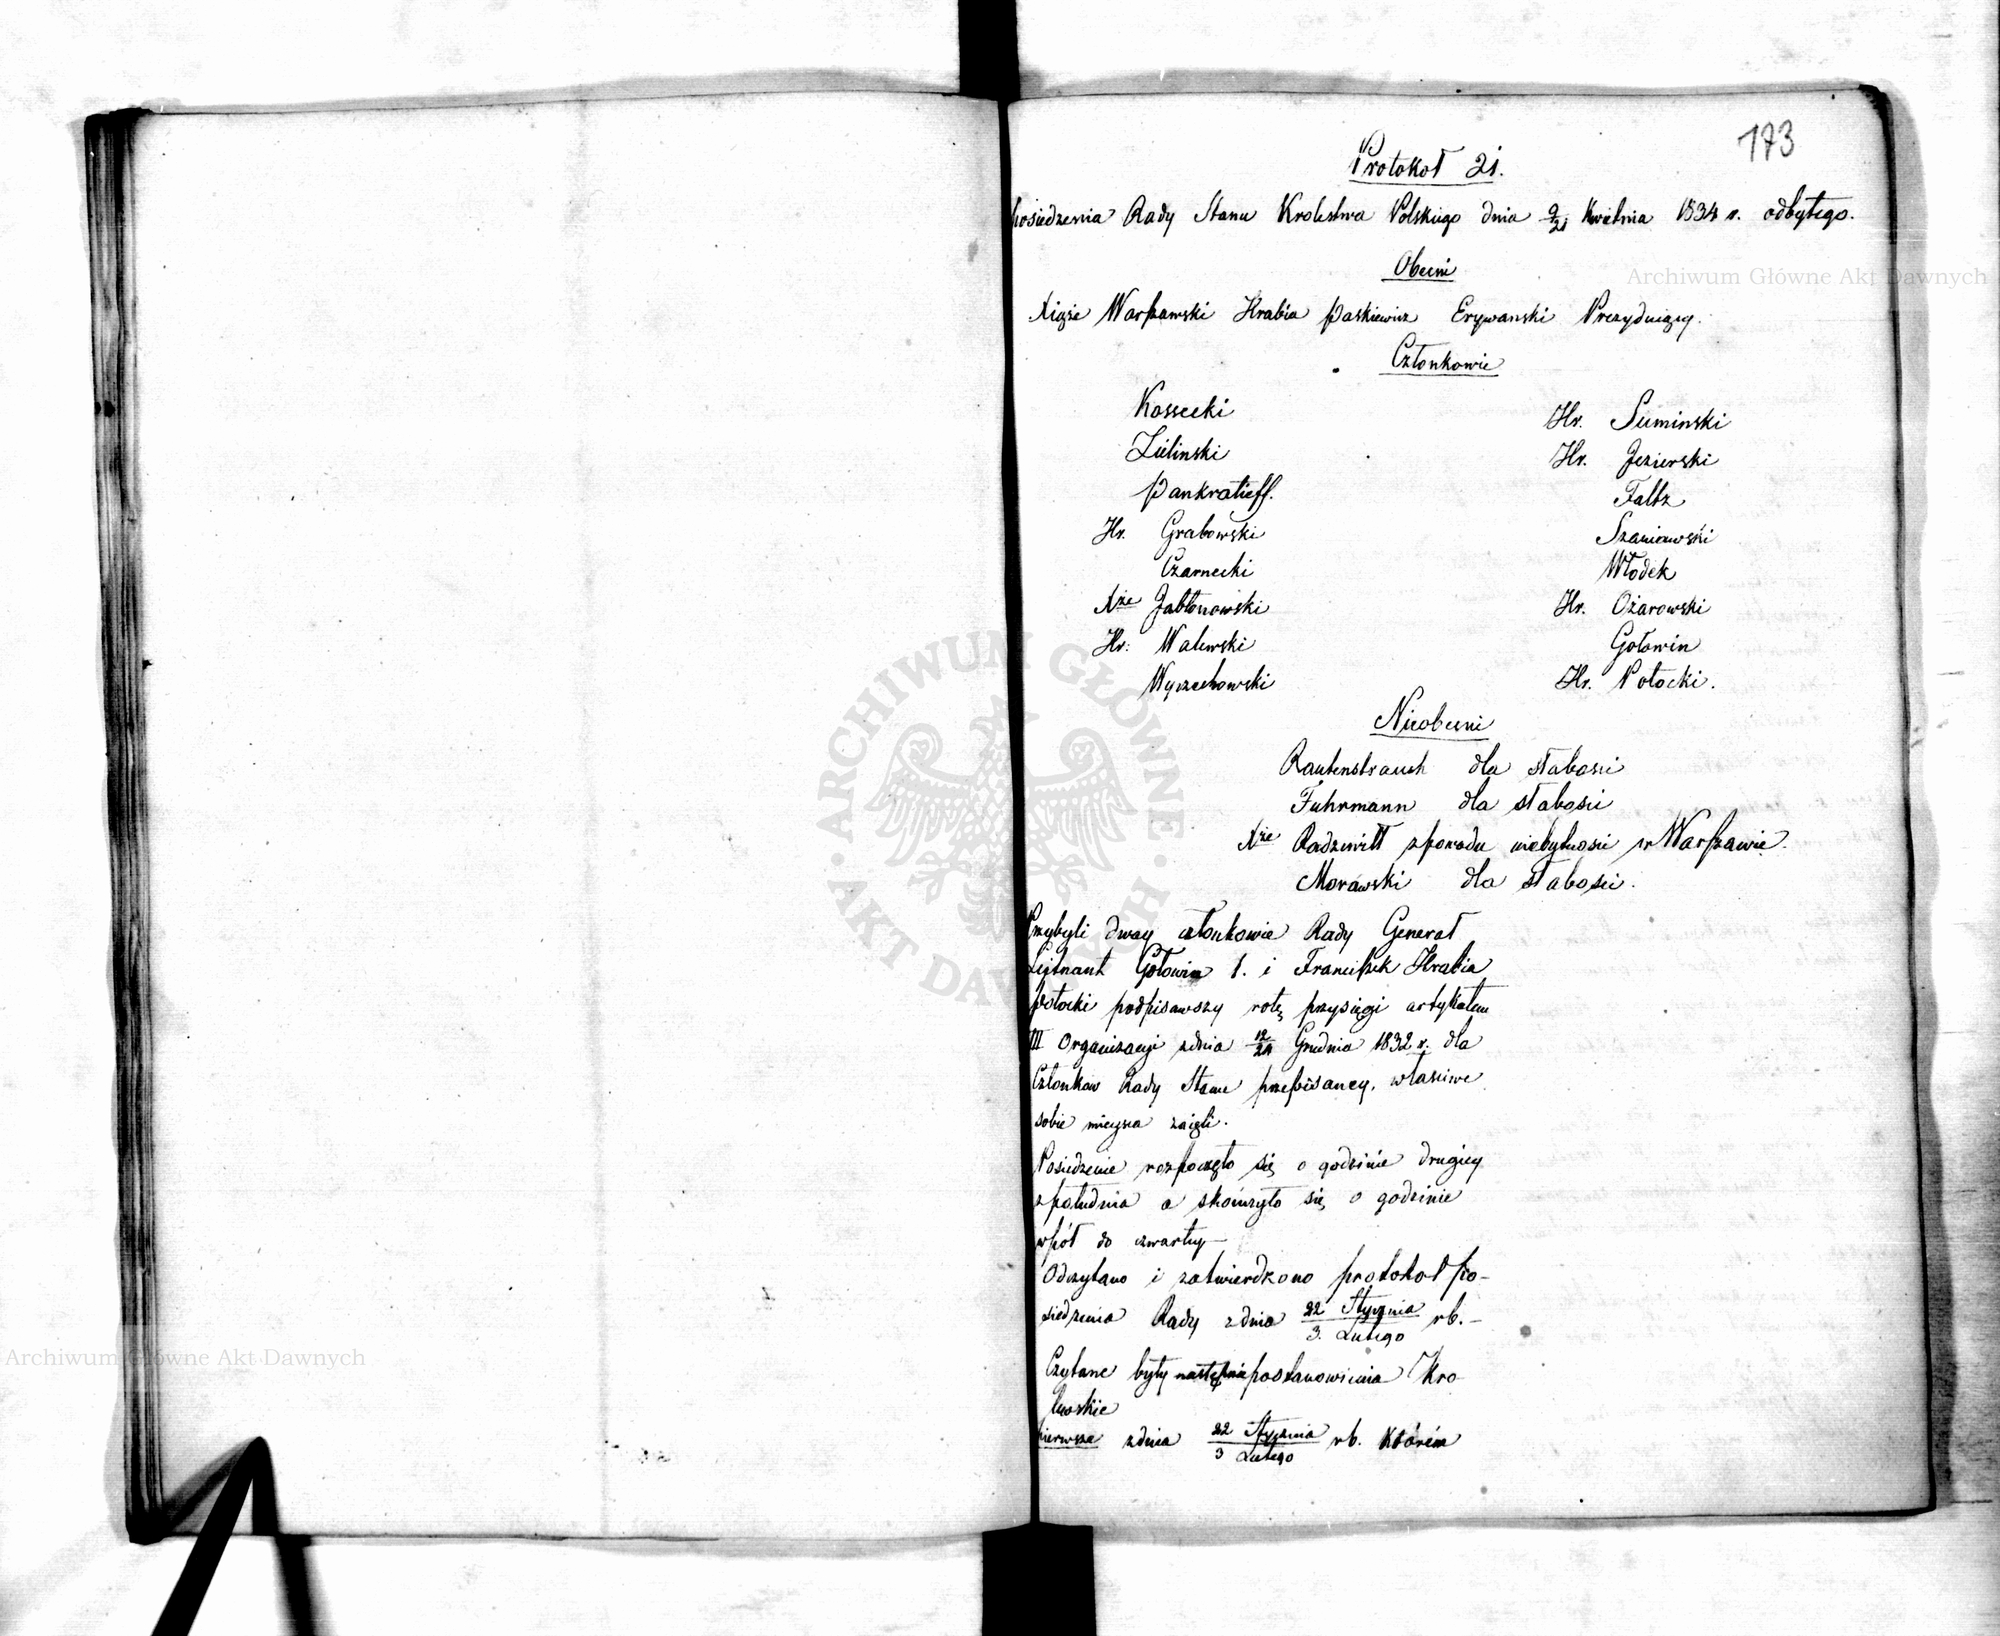 173
Protokoł 21.
Posiedzenia Rady Stanu Krolestwa Polskiego dnia 9/21 Kwietnia 1834 r. odbytego.
Obecni
Xiąże Warszawski Hrabia Paskiewicz Erywanski Prezyduiący.
Członkowie
Kossecki
Hr. Suminski
Zielinski
Hr. Jezierski
Pankratieff.
Faltz
Hr. Grabowski
Szaniawski
Czarnecki
Włodek
Xże Jabłonowski
Hr. Ożarowski
Hr: Walewski
Gołowin
Wyczechowski
Hr. Potocki.
Nieobecni
Rautenstrauch dla słabosci
Fuhrmann dla słabosci
Xże Radziwiłł zpowodu niebytnosci w Warszawie.
Morawski dla słabosci.
Przybyli dway członkowie Rady Generał
Lejtnant Gołowin 1. i Franciszek Hrabia
Potocki podpisawszy rotę przysięgi artykułem
III Organizacyi zdnia 12/24 Grudnia 1832 r. dla
Członkow Rady Stanu przepisaney, własciwe
sobie mieysca zaięli.
Posiedzenie rozpoczęło się o godzinie drugiey
z południa a skończyło się o godzinie
wpół do czwartey —
Odczytano i zatwierdzono protokoł po-
siedzenia Rady zdnia 22 Stycznia / 3. Lutego rb. —
Czytane były postanowienia Kro-
lewskie
pierwsze zdnia 22 Stycznia / 3 Lutego rb. którém
Archiwum Główne Akt Dawnych
Archiwum Główne Akt Dawnych
ARCHIWUM GŁÓWNE · AKT DAWNYCH ·